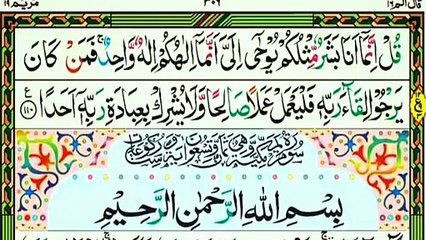 قال الم ١٦ ٣٠٩ مريم ١٩
قُلْ اِنَّمَاۤ اَنَا بَشَرٌ مِّثْلُكُمْ يُوْحٰۤى اِلَيَّ اَنَّمَاۤ اِلٰهُكُمْ اِلٰهٌ وَّاحِدٌ ۚ فَمَنْ كَانَ
يَرْجُوْا لِقَآءَ رَبِّهٖ فَلْيَعْمَلْ عَمَلًا صَالِحًا وَّلَا يُشْرِكْ بِعِبَادَةِ رَبِّهٖۤ اَحَدًا ﴿١١٠﴾ ع
بِسْمِ اللّٰهِ الرَّحْمٰنِ الرَّحِيْمِ